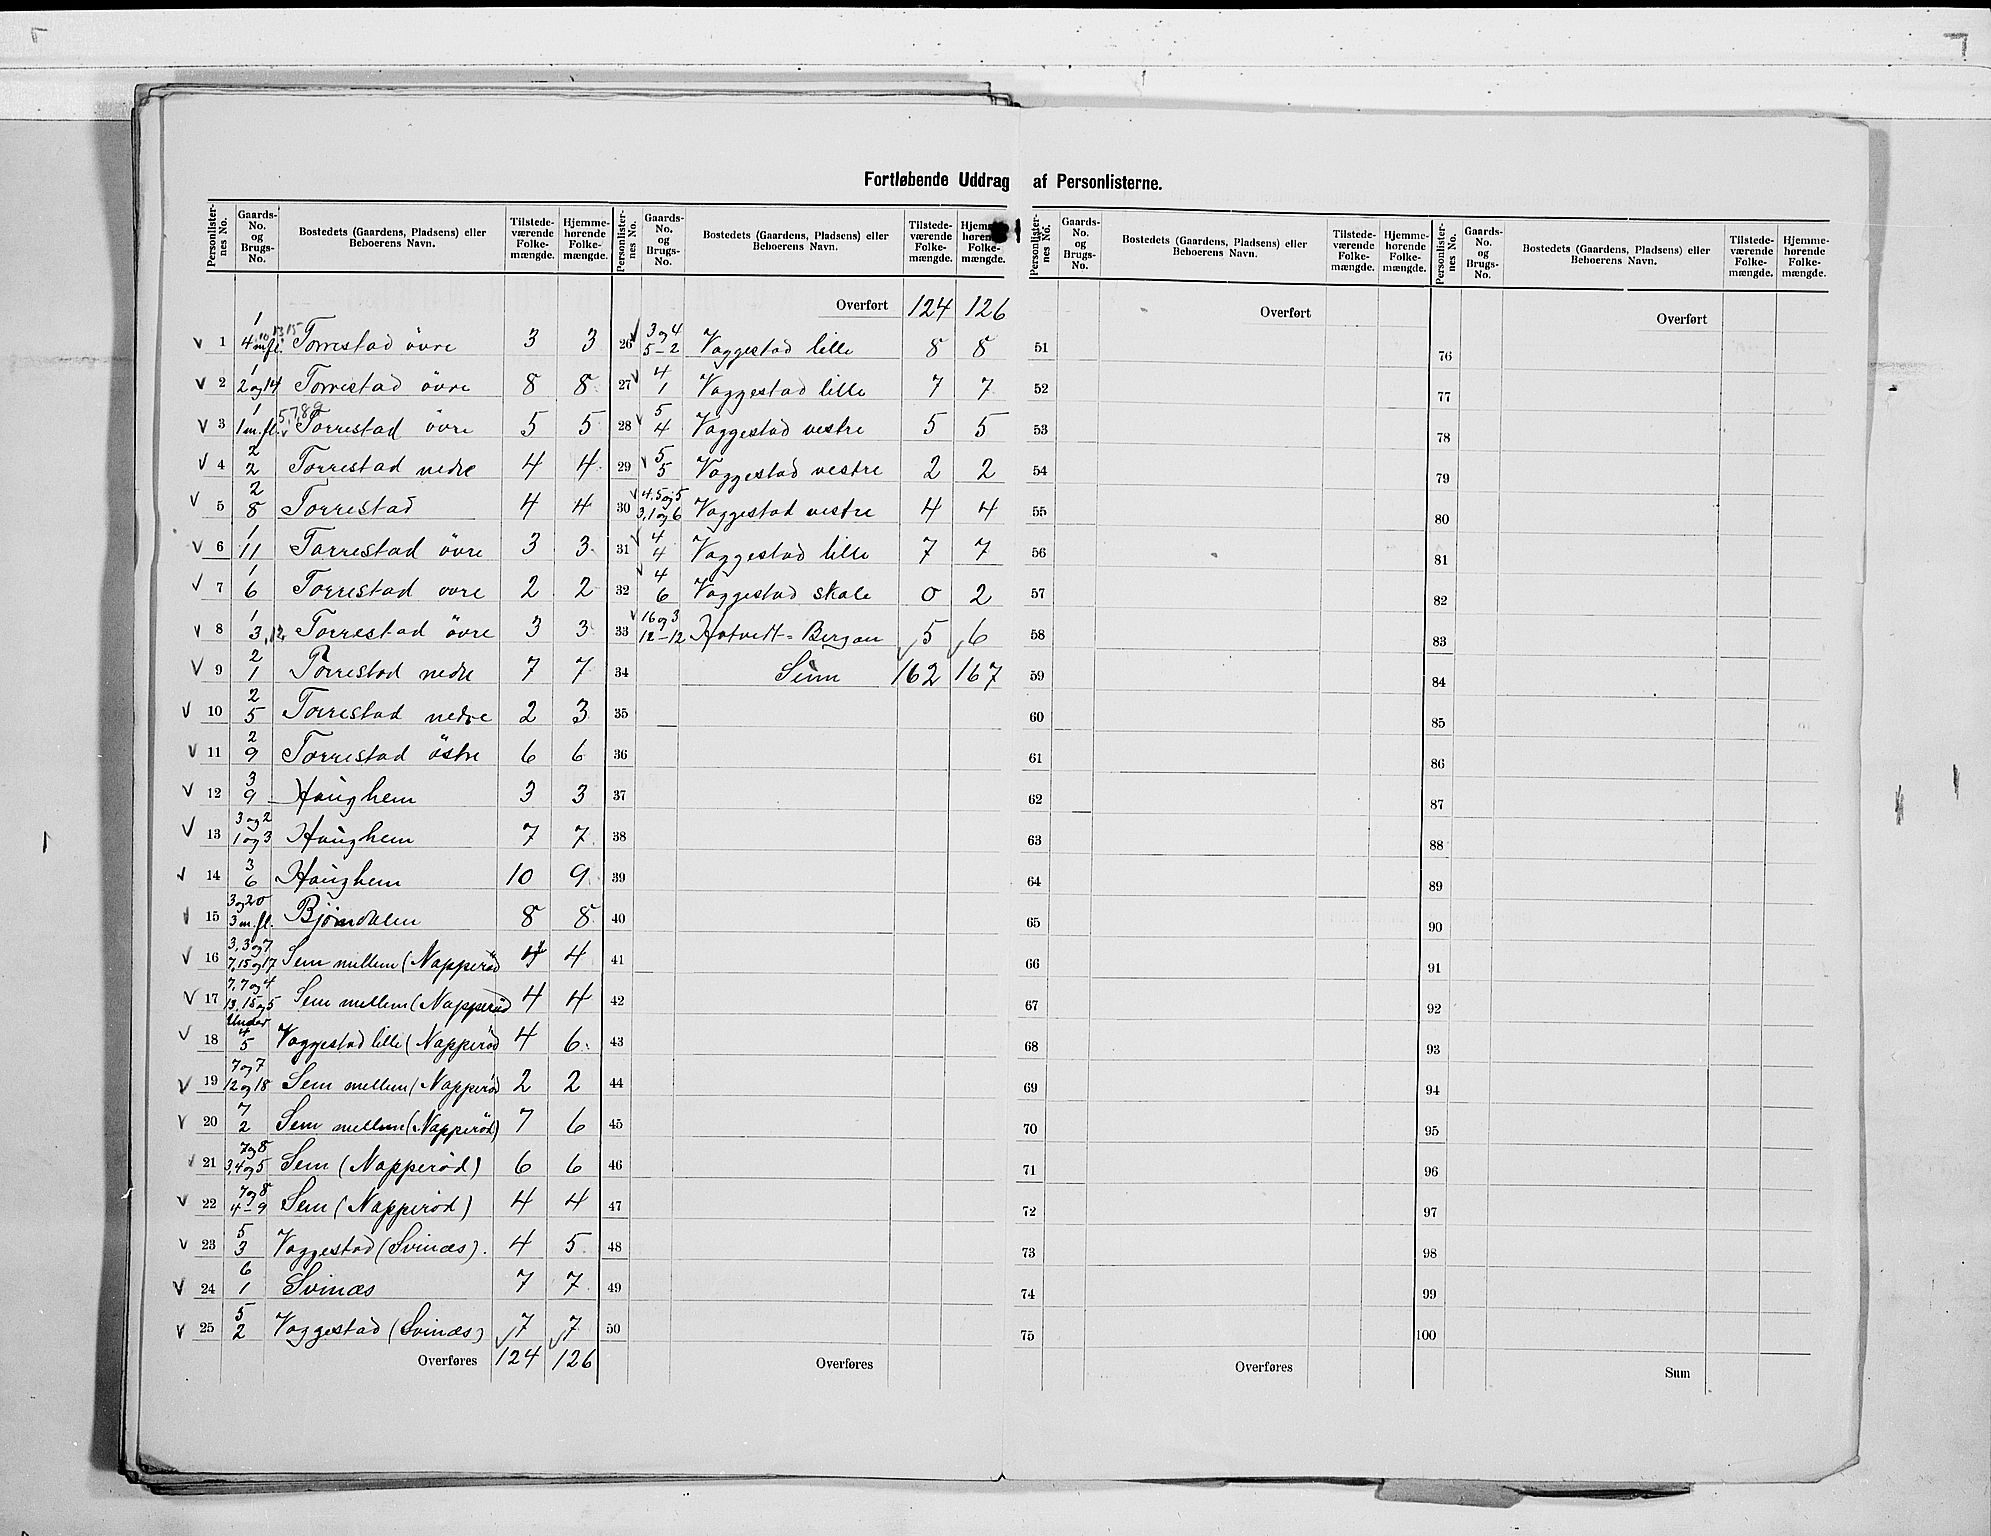 Fortløbende Uddrag af Personlisterne.
Personlister-nes No. | Gaards-No. og Brugs-No. | Bostedets (Gaardens, Pladsens) eller Beboerens Navn. | Tilstede-værende Folke-mængde. | Hjemme-hørende Folke-mængde.
Overført 124 126
Overført
Overført
1 | 1 / 4 m.fl. 10 13 15 | Torrestad övre | 3 | 3
2 | 1 / 2 og 14 | Torrestad övre | 8 | 8
3 | 1 / 1 m.fl. 5,7,8,9 | Torrestad övre | 5 | 5
4 | 2 / 2 | Torrestad nedre | 4 | 4
5 | 2 / 8 | Torrestad | 4 | 4
6 | 1 / 11 | Torrestad övre | 3 | 3
7 | 1 / 6 | Torrestad ovre | 2 | 2
8 | 1 / 3,12 | Torrestad övre | 3 | 3
9 | 2 / 1 | Torrestad nedre | 7 | 7
10 | 2 / 5 | Torrestad nedre | 2 | 3
11 | 2 / 9 | Torrestad östre | 6 | 6
12 | 3 / 9 | Haughem | 3 | 3
13 | 3 og 2 / 1 og 3 | Haughem | 7 | 7
14 | 3 / 6 | Haughem | 10 | 9
15 | 3 og 20 / 3 m.fl. | Björndalen | 8 | 8
16 | 3, 3 og 7 / 7, 15 og 17 | Sem mellem (Napperöd | 4 | 4
17 | 7, 7 og 4 / 13, 15 og 5 | Sem mellem (Napperöd | 4 | 4
18 | Under 4 / 5 | Vaggestad lille (Napperöd | 4 | 6
19 | 7 og 7 / 12 og 18 | Sem mellem (Napperöd | 2 | 2
20 | 7 / 2 | Sem mellem (Napperöd) | 7 | 6
21 | 7 og 8 / 3, 4 og 5 | Sem (Napperöd) | 6 | 6
22 | 7 og 8 / 4 - 9 | Sem (Napperöd) | 4 | 4
23 | 5 / 3 | Vaggestad (Svinæs). | 4 | 5
24 | 6 / 1 | Svinæs | 7 | 7
25 | 5 / 2 | Vaggestad (Svinæs) | 7 | 7
Overføres 124 126
26 | 3 og 4 / 5 - 2 | Vaggestad lille | 8 | 8
27 | 4 / 1 | Vaggestad lille | 7 | 7
28 | 5 / 4 | Vaggestad vestre | 5 | 5
29 | 5 / 5 | Vaggestad vestre | 2 | 2
30 | 4, 5 og 5 / 3, 1 og 6 | Vaggestad vestre | 4 | 4
31 | 4 / 4 | Vaggestad lille | 7 | 7
32 | 4 / 6 | Vaggestad skole | 0 | 2
33 | 16 og 3 / 12 - 12 | Hotvett = Bergan | 5 | 6
34 | Sum | 162 | 167
35
36
37
38
39
40
41
42
43
44
45
46
47
48
49
50
Overføres
51
52
53
54
55
56
57
58
59
60
61
62
63
64
65
66
67
68
69
70
71
72
73
74
75
Overføres
76
77
78
79
80
81
82
83
84
85
86
87
88
89
90
91
92
93
94
95
96
97
98
99
100
Sum